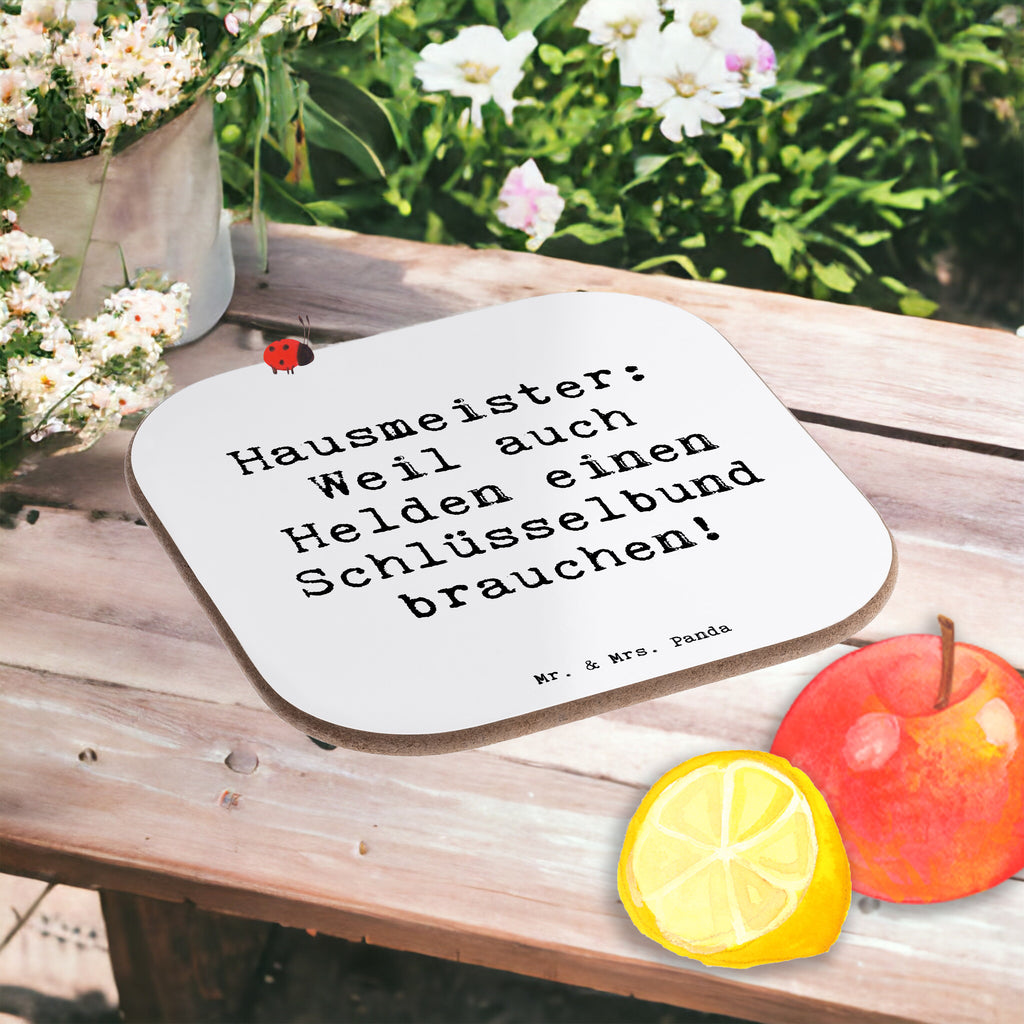 Hausmeister:
Weil auch
Helden einen
Schlüsselbund
brauchen!
Mr. & Mrs. Panda